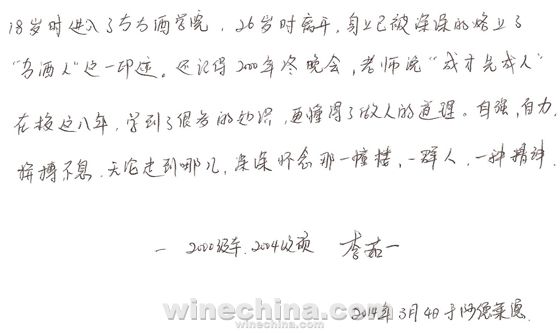 18岁时进入了葡萄酒学院，26岁时离开，身上已被深深的烙上了
“葡酒人”这一印迹。还记得2000年冬晚会，老师说“成才先成人”
在校这八年，学到了很多的知识，更懂得了做人的道理。自强，自力，
拼搏不息，无论走到哪儿，深深怀念那一幢楼，一群人，一种精神
— 2000级本，2004级硕 李茹一
2014年3月4日于阿德莱德
www.winechina.com